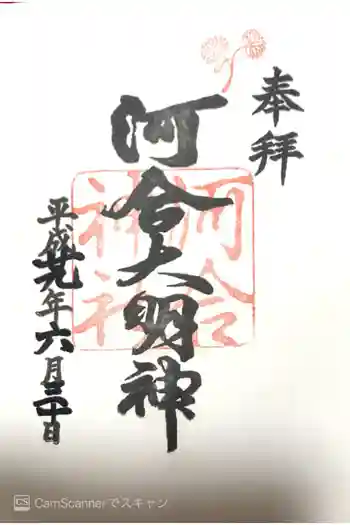 奉拝
河合大明神
河合
神社
平成廿九年六月三十日
CS CamScannerでスキャン